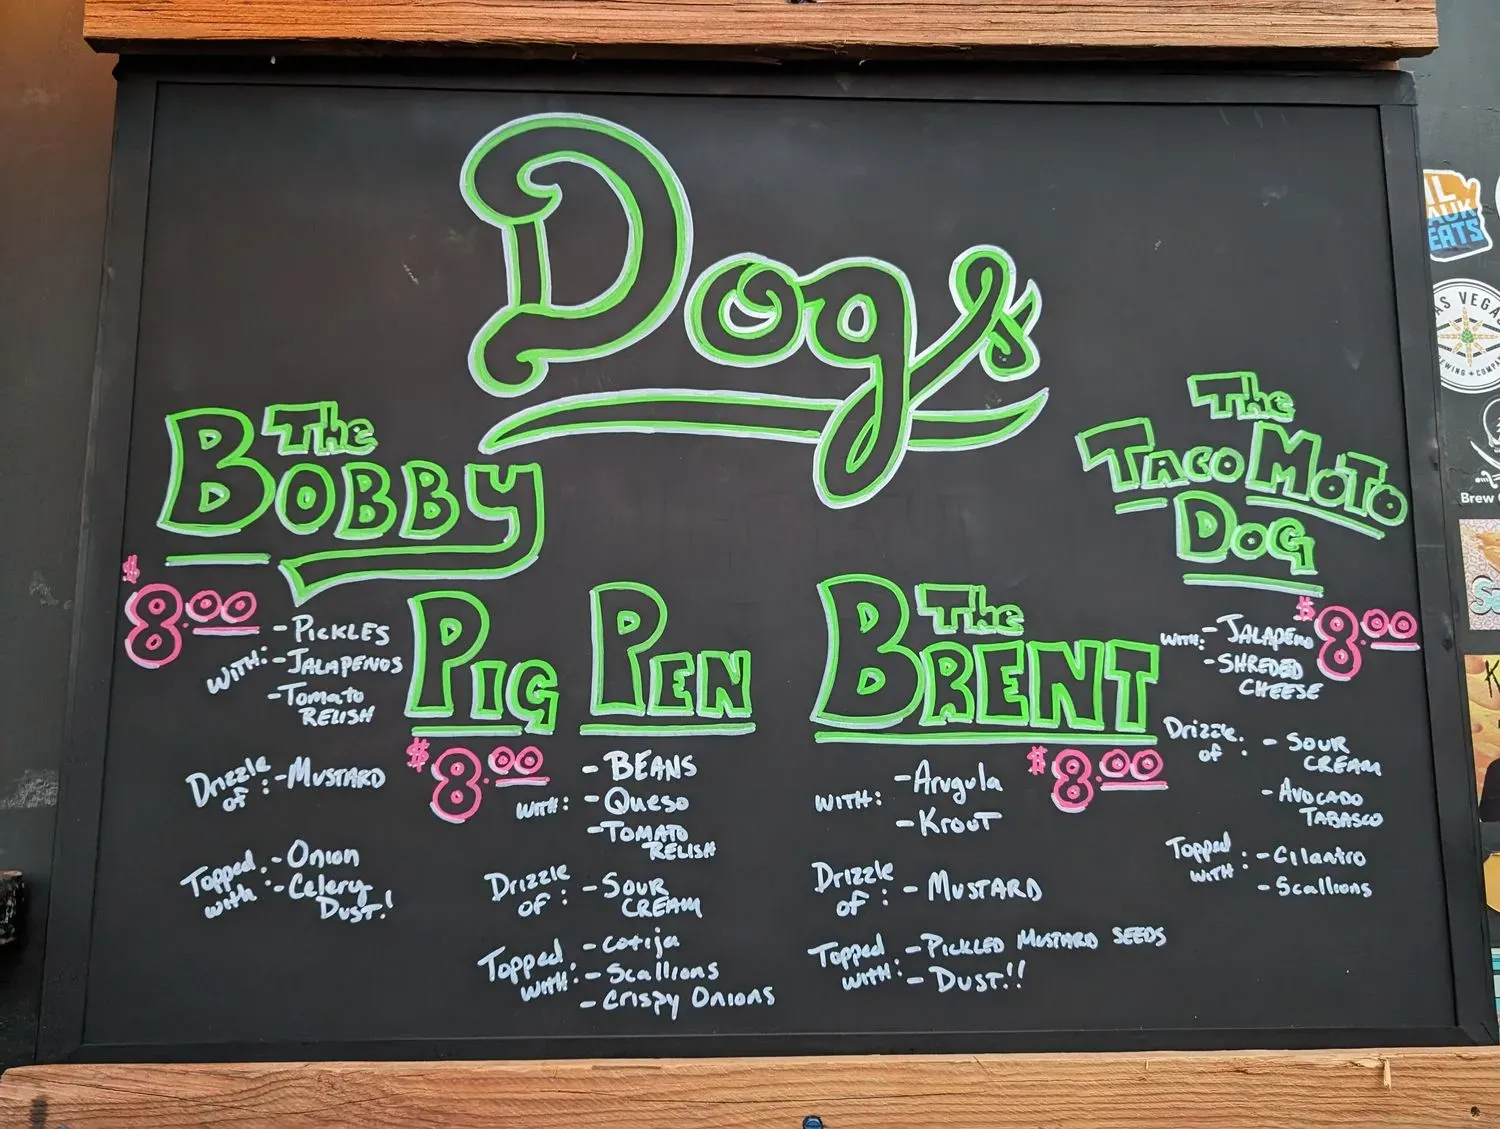 Dogs
The
BOBBY
$8.00
WITH:
- PICKLES
- JALAPENOS
- TOMATO
RELISH
Drizzle
OF:
- MUSTARD
Topped
with:
- Onion
- Celery
DUST!
PIG PEN
$8.00
WITH:
- BEANS
- QUESO
- TOMATO
RELISH
DRIZZLE
OF:
- SOUR
CREAM
Topped
WITH:
- Cotija
- Scallions
- Crispy Onions
The
BRENT
$8.00
WITH:
- Arugula
- KROUT
DRIZZLE
OF:
- MUSTARD
Topped
WITH:
- PICKLED MUSTARD SEEDS
- DUST!!
The
TACO MOTO
DOG
$8.00
WITH:
- JALAPENO
- SHREDED
CHEESE
Drizzle
of:
- SOUR
CREAM
- AVOCADO
TABASCO
Topped
WITH:
- Cilantro
- Scallions
EATS
AS VEGA
EWING • COMPA
Brew